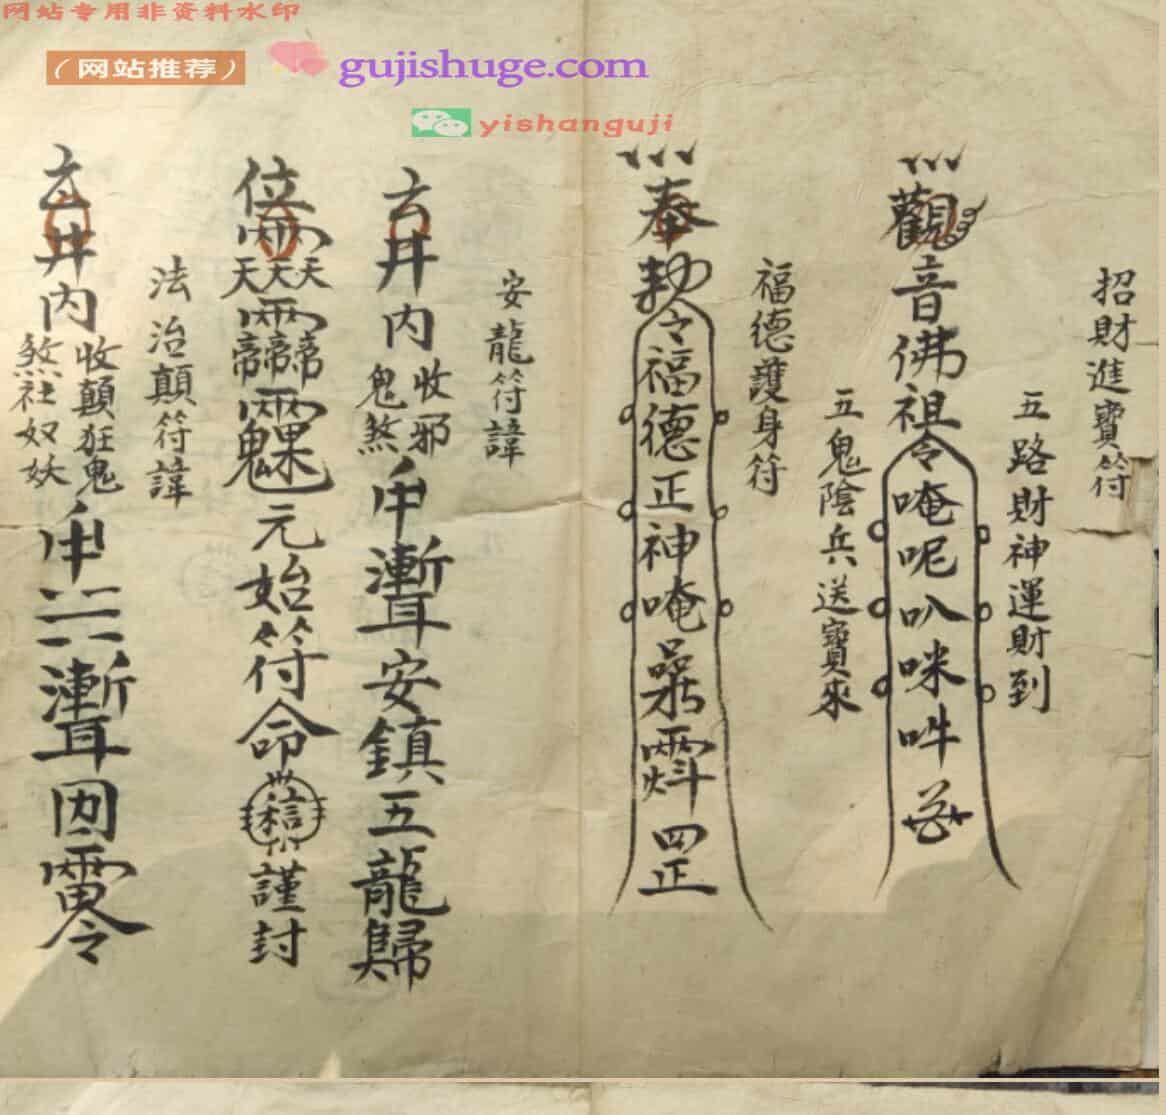 网站专用非资料水印
（网站推荐）
gujishuge.com
yishanguji
招財進寶符
五路財神運財到
觀音佛祖令唵呢叭咪吽
五鬼陰兵送寶來
福德護身符
奉勅令福德正神唵
四正
安龍符諱
玄井內
收邪
鬼煞
安鎮五龍歸
元始符命
謹封
法治顛符諱
玄井內
收顛狂鬼
煞社奴妖